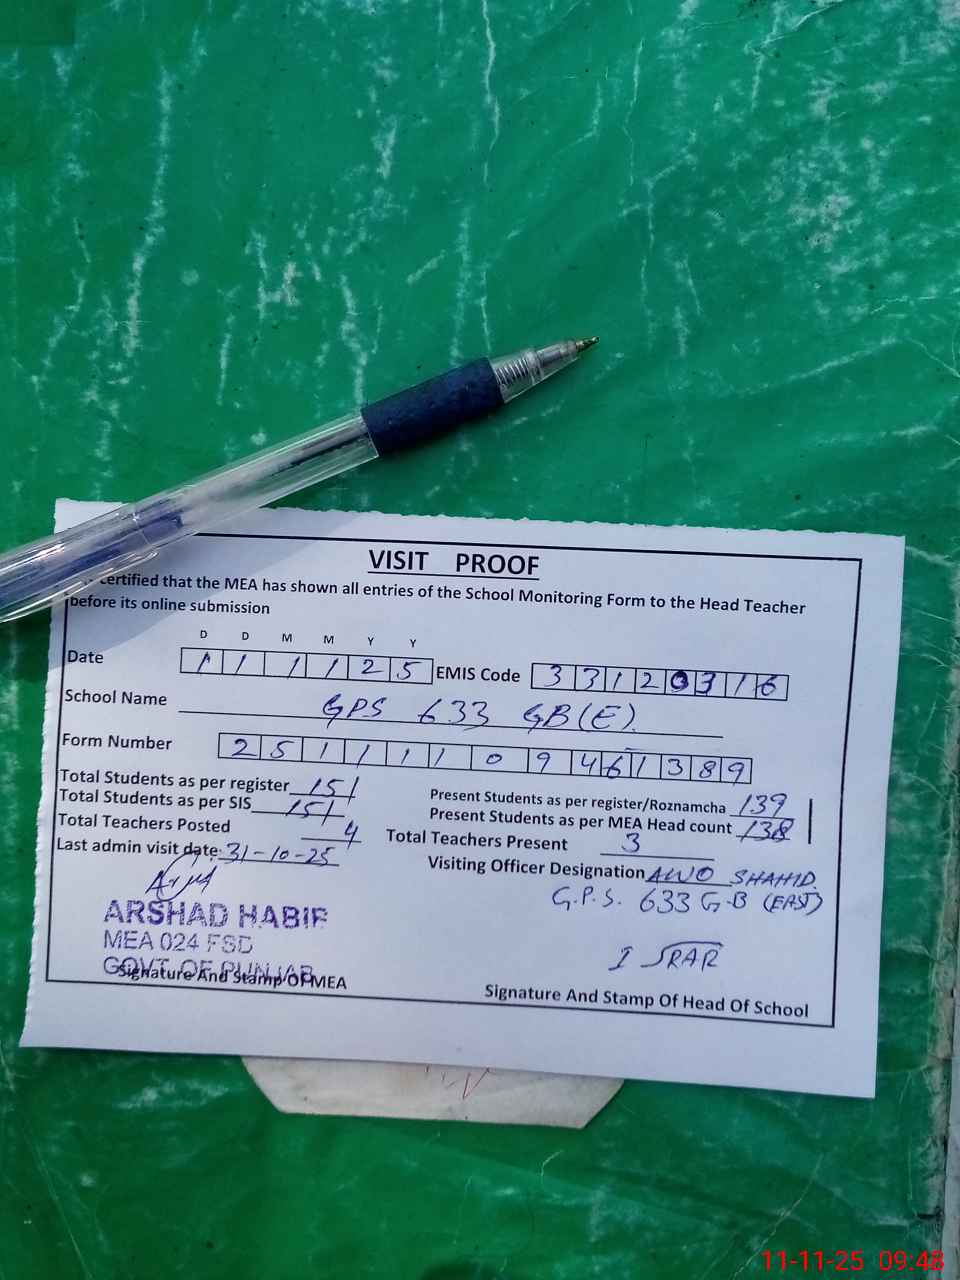 VISIT PROOF
certified that the MEA has shown all entries of the School Monitoring Form to the Head Teacher
before its online submission
D D M M Y Y
Date 1 1 1 1 2 5 EMIS Code 3 3 1 2 0 3 1 6
School Name GPS 633 GB(E).
Form Number 2 5 1 1 1 1 0 9 4 6 1 3 8 9
Total Students as per register 151
Present Students as per register/Roznamcha 139
Total Students as per SIS 151
Present Students as per MEA Head count 138
Total Teachers Posted 4
Total Teachers Present 3
Last admin visit date: 31-10-25
Visiting Officer Designation AWO SHAHID.
G.P.S. 633 G-B (EAST)
ARSHAD HABIB
MEA 024 FSD
GOVT. OF PUNJAB
ISRAR
Signature And Stamp Of MEA
Signature And Stamp Of Head Of School
11-11-25 09:48